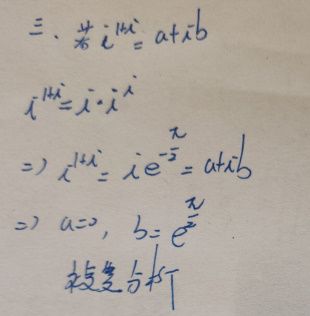 三、若 i^{1+i} = a+ib
i^{1+i} = i·i^i
=> i^{1+i} = i e^{-π/2} = a+ib
=> a=0, b= e^{π/2}
复分析